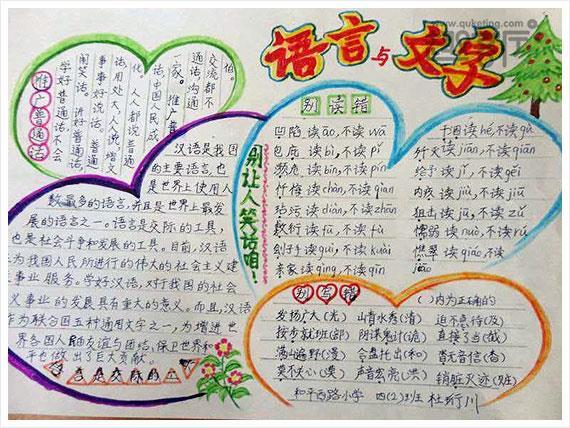 www.quketing.com
语言与文字
推广普通话
学好普通话,不会
闹笑话。讲普通
事事好说话。普通
话,用处大,人人说,增文
化。人人都说普通
话,中国人民成
一家。推广普
通话,沟通
交流都不
怕。
汉语是我国
的主要语言,也
是世界上使用人
数最多的语言,并且是世界上最发
展的语言之一。语言是交际的工具,
也是社会斗争和发展的工具。目前,汉语
为我国人民所进行的伟大的社会主义建
事业服务。学好汉语,对于我国的社会
义事业的发展具有重大的意义。而且,汉语
作为联合国五种通用文字之一,为增进世
界各国人民的友谊与团结,保卫世界和
平也做出了巨大贡献。
别让人笑话咱!
别读错
凹陷 读āo,不读wā
包庇 读bì,不读pí
濒危 读bīn,不读pín
忏悔 读chàn,不读qiān
玷污 读diàn,不读zhān
敷衍 读fū,不读fù
刽子手 读guì,不读kuài
亲家 读qìng,不读qīn
干涸 读hé,不读gù
歼灭 读jiān,不读qiān
给予 读jǐ,不读gěi
内疚 读jiù,不读jiū
狙击 读jū,不读zǔ
懦弱 读nuò,不读rú
憔悴 读qiáo,不读jiāo
别写错
( )内为正确的
发扬广大(光) 山青水秀(清) 迫不急待(及)
按步就班(部) 阴谋鬼计(诡) 直接了当(截)
漫山遍野(漫) 合盘托出(和) 杳无音信(杳)
莫不关心(漠) 声音宏亮(洪) 销脏灭迹(赃)
和平西路小学 四(2)班 杜珩川